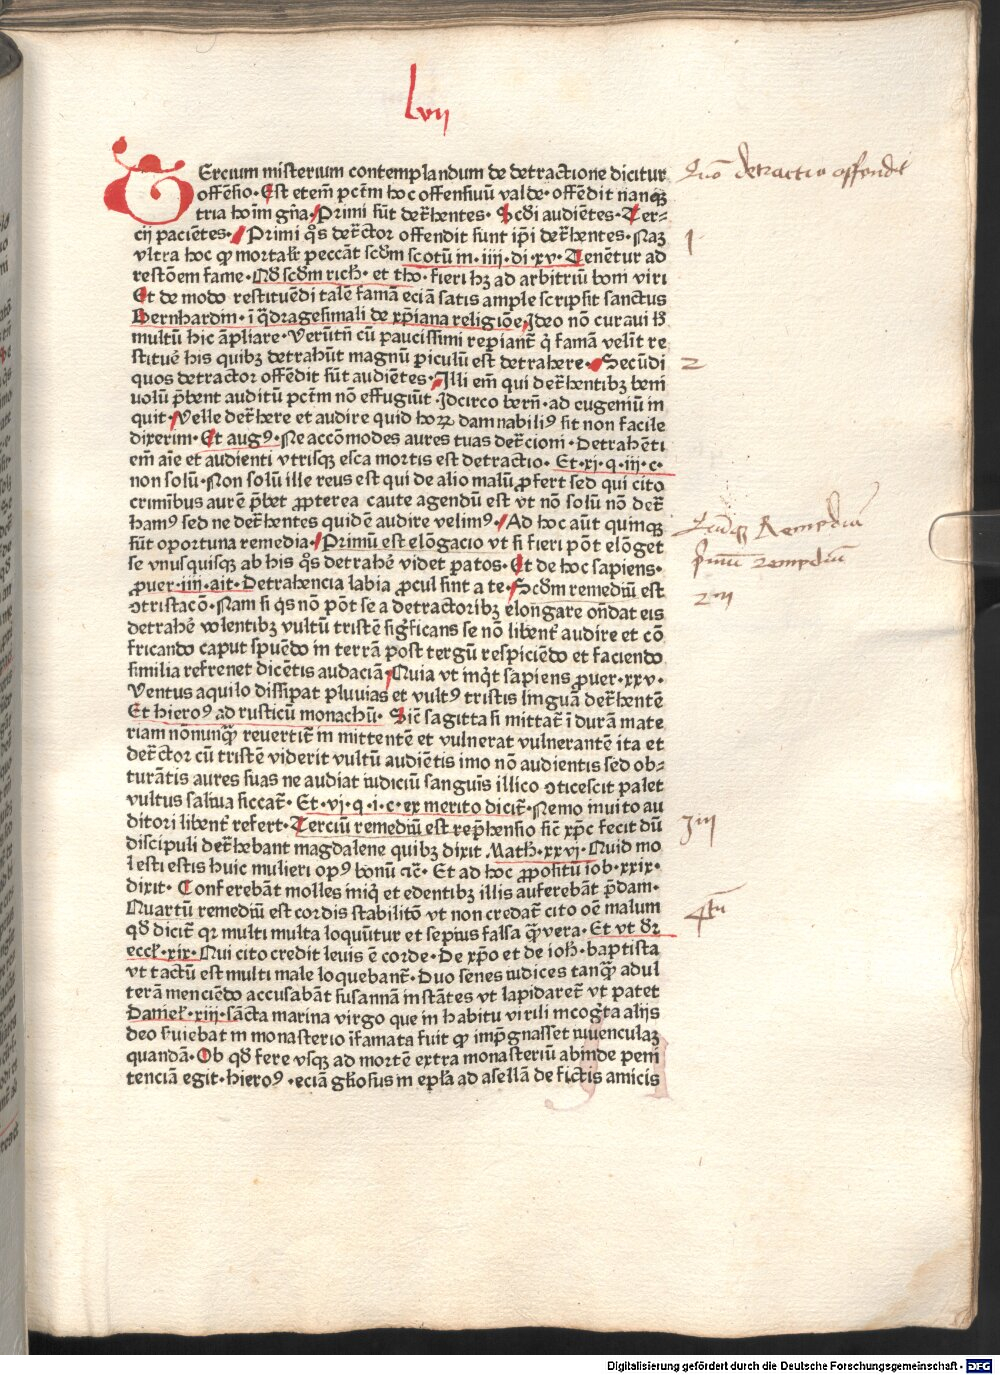 lvij
TErcium misterium contemplandum de detractione dicitur
offēsio· Est etem̄ pctm̄ hoc offensiuū valde· offēdit nanqȝ
tria hoīm gn̄a· Primi sūt det̄hentes· Scd̄i audiētes· Ter-
cij paciētes· Primi q̄s det̄ctor offendit sunt ip̄i det̄hentes· Naȝ
vltra hoc ꝙ mortalr̄ peccāt scd̄m scotū in· iiii· di·xv· Tenētur ad
restōem fame· Nō scd̄m rich̄· et tho· fieri hȝ ad arbitriū boni viri
Et de modo restituēdi talē famā eciā satis ample scripsit sanctus
Bernhardin· ī q̄dragesimali de xp̄iana religiōe, Ideo nō curaui h̄
multū hic āpliare· Verūtn̄ cū paucissimi reperiant̄ q̄ famā velīt re
stituē his quibȝ detrahūt magnū ꝑiculū est detrahere· Secūdi
quos detractor offēdit sūt audiētes· Illi em̄ qui det̄hentibȝ beni
uolū p̄bent auditū pctm̄ nō effugiūt· Idcirco bern̄· ad eugeniū in
quit· Velle det̄here et audire quid hoꝝ damnabiliꝰ sit non facile
dixerim· Et augꝰ· Ne accōmodes aures tuas det̄cioni· Detrahēti
em̄ aīe et audienti vtrisqȝ esca mortis est detractio· Et·xj·q·iij·c·
non solū· Non solū ille reus est qui de alio malū ꝓfert sed qui cito
criminibus aurē p̄bet ꝓpterea caute agendū est vt nō solū nō det̄
hamꝰ sed ne det̄hentes quidē audire velimꝰ· Ad hoc aūt quinqȝ
sūt oportuna remedia· Primū est elōgacio vt si fieri pōt elōget
se vnusquisqȝ ab his q̄s detrahē videt paratos· Et de hoc sapiens·
ꝓuer·iiii·ait· Detrahencia labia ꝓcul sint a te· Scd̄m remediū est
ꝯtristacō· Nam si q̄s nō pōt se a detractoribȝ elongare ondat eis
detrahē volentibȝ vultū tristē significans se nō libent̄ audire et cō
fricando caput spuēdo in terrā post tergū respiciēdo et faciendo
similia refrenet dicētis audaciā· Quia vt inq̄t sapiens ꝓuer·xxv·
Ventus aquilo dissipat pluuias et vultꝰ tristis linguā det̄hentē
Et hieroꝰ ad rusticū monachū· Sic̄ sagitta si mittat̄ ī durā mate
riam nōnunqꝫ reuertit̄ in mittentē et vulnerat vulnerantē ita et
det̄ctor cū tristē viderit vultū audiētis imo nō audientis sed ob-
turātis aures suas ne audiat iudiciū sanguīs illico ꝯticescit palet
vultus saliua siccat̄· Et·vj·q·i·c·ex merito dicit̄· Nemo inuito au
ditori libent̄ refert· Terciū remediū est rep̄hensio sic̄ xp̄c fecit dū
discipuli det̄hebant magdalene quibȝ dixit Math̄·xxvj· Quid mo
lesti estis huic mulieri opꝰ bonū rc̄· Et ad hoc ꝓpositū iob·xxix·
dixit· Conterebāt molles iniq̄ et edentibȝ illis auferebāt p̄dam·
Quartū remediū est cordis stabilitō vt non credat̄ cito oē malum
qd̄ dicit̄ qr multi multa loquūtur et sepius falsa qꝫ vera· Et vt d̄r
eccl̄·xix· Qui cito credit leuis ē corde· De xp̄o et de ioh̄· baptista
vt tactū est multi male loquebant̄· Duo senes iudices tanqꝫ adul
terā menciēdo accusabāt susannā instātes vt lapidaret̄ vt patet
Daniel̄·xiii· sācta marina virgo que in habitu virili incogīta alijs
deo ſuiebat in monasterio īfamata fuit ꝙ imp̄gnasset iuuenculaȝ
quandā· Ob qd̄ fere vsqȝ ad mortē extra monasteriū abinde peni
tenciam egit· hieroꝰ ·eciā gl̄iosus in epl̄a ad asellā de fictis amicis
Quō detractio offendit
1
2
Quīqȝ Remedia
p̄mū remediū
2m
3m
4tū
Digitalisierung gefördert durch die Deutsche Forschungsgemeinschaft - DFG